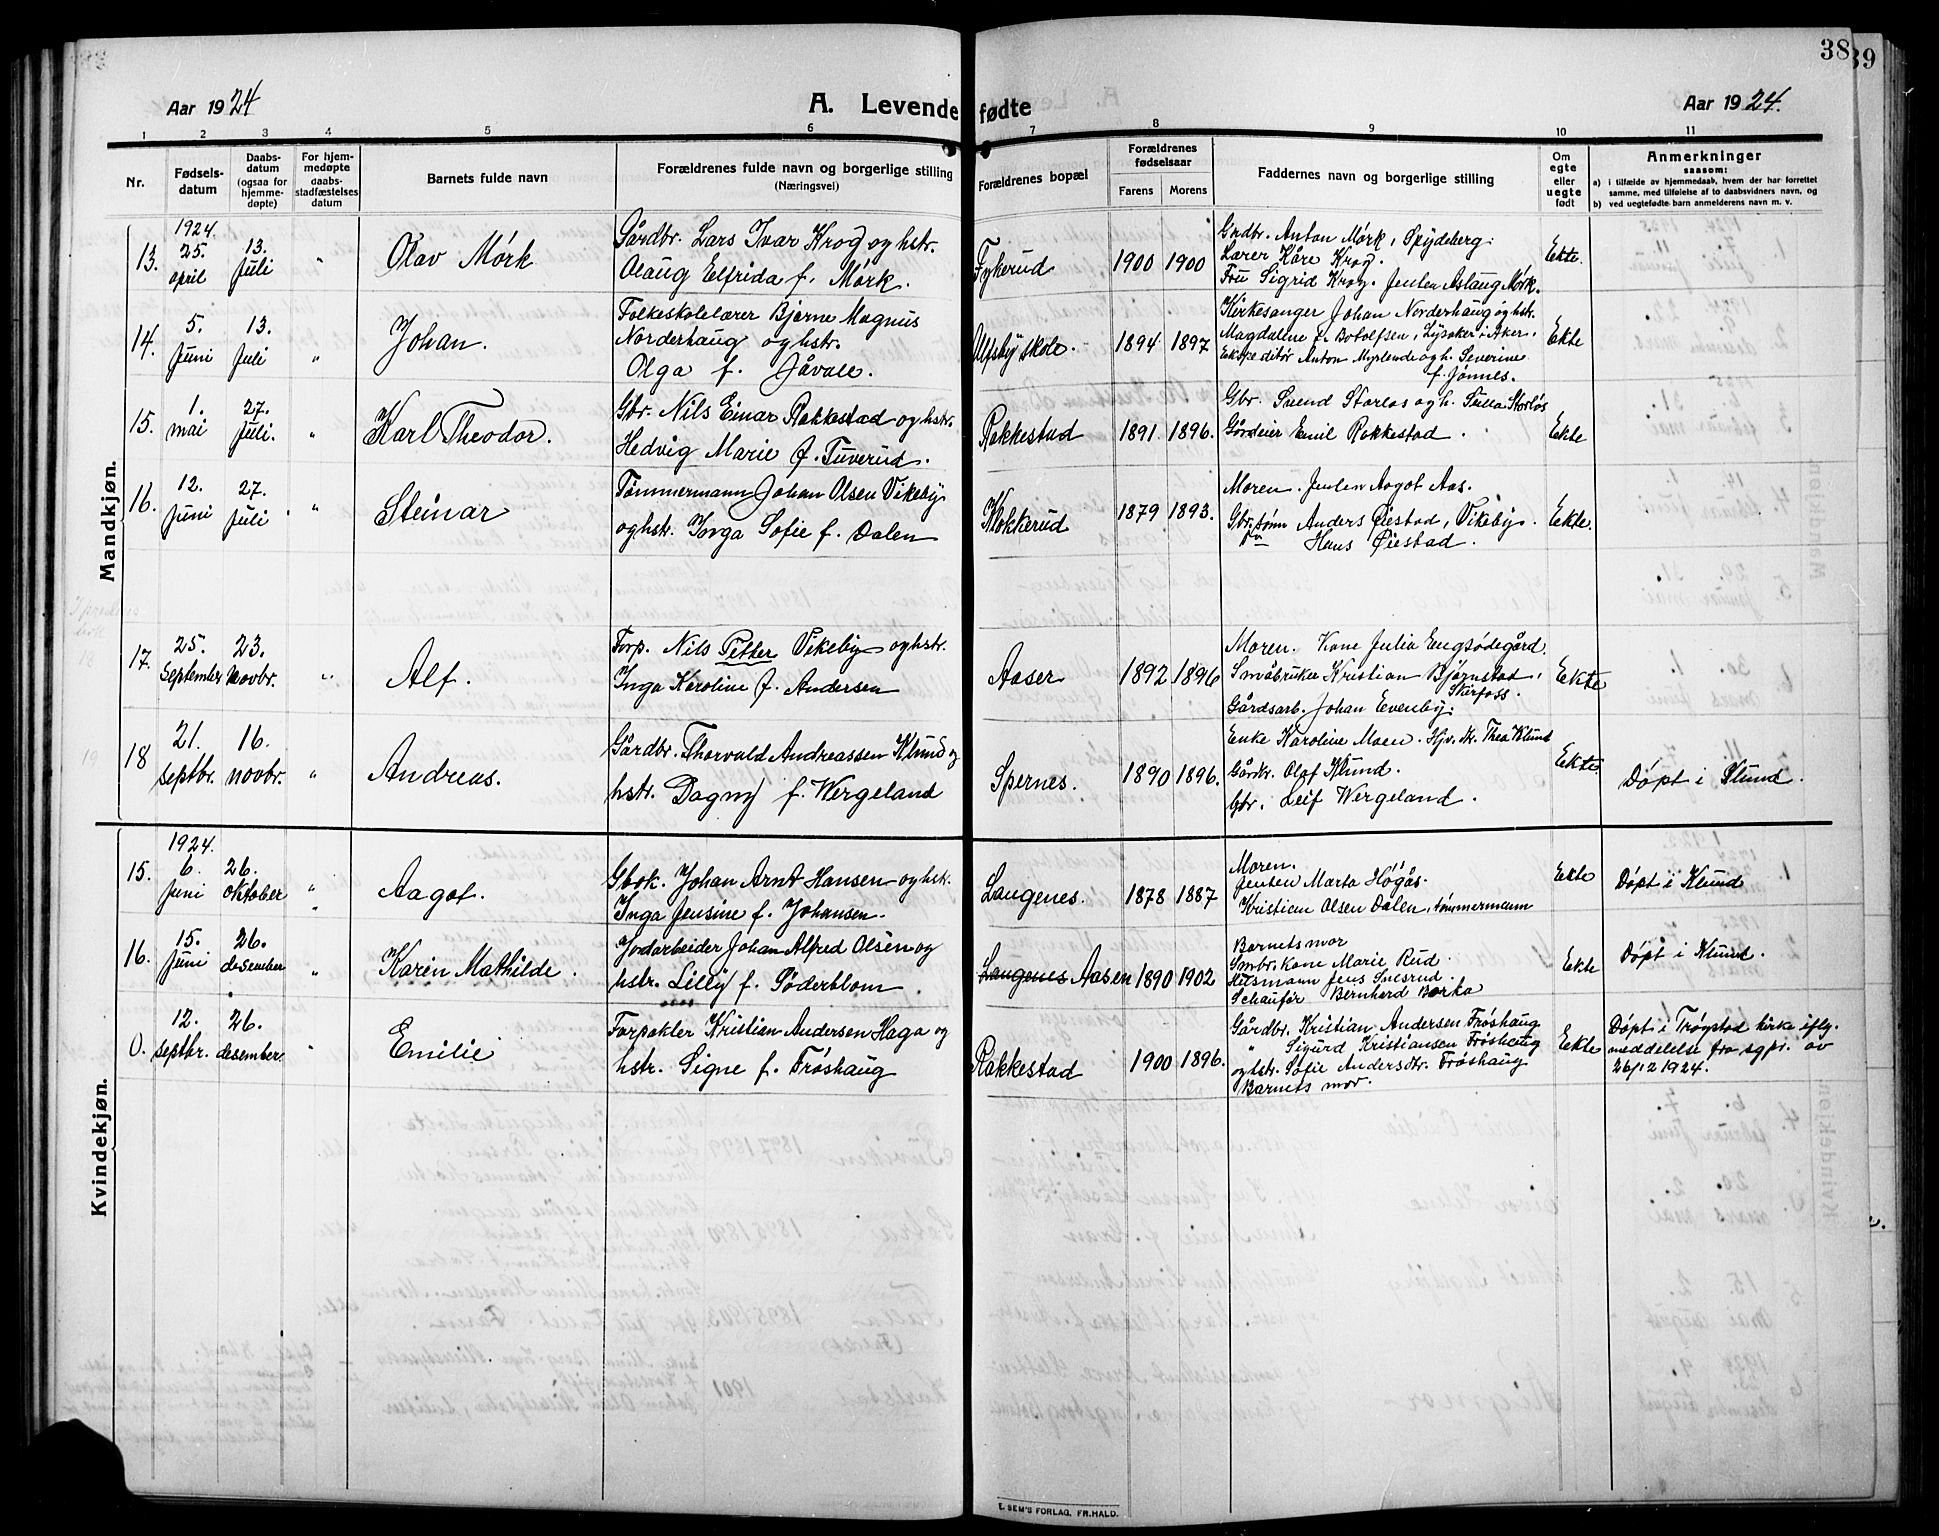 38
39
Aar 1924
A. Levende fødte
Aar 1924.
1 2 3 4 5 6 7 8 9 10 11
Nr.
Fødsels-
datum
Daabs-
datum
(ogsaa for
hjemme-
døpte)
For hjem-
medøpte
daabs-
stadfæstelses
datum
Barnets fulde navn
Forældrenes fulde navn og borgerlige stilling
(Næringsvei)
Forældrenes bopæl
Forældrenes
fødselsaar
Farens
Morens
Faddernes navn og borgerlige stilling
Om
egte
eller
uegte
født
Anmerkninger
saasom:
a) i tilfælde av hjemmedaab, hvem der har forrettet
samme, med tilføielse av to daabsvidners navn, og
b) ved uegtefødte barn anmelderens navn m. v.
Mandkjøn.
1924.
13. 25. april 13. Juli " Olav Mørk
Gårdbr. Lars Ivar Krog og hstr.
Olaug Elfrida f. Mørk.
Fykerud 1900 1900
Grdbr. Anton Mørk, Spydeberg.
Lærer Kåre Krog.
Fru Sigrid Krog. Jenten Aslaug Mørk.
Ekte.
14. 5. Juni 13. Juli " Johan.
Folkeskolelærer Bjarne Magnus
Norderhaug og hstr.
Olga f. Jåvall.
Ulfsby skole. 1894 1897
Kirkesanger Johan Norderhaug og hstr.
Magdalene f. Botolfsen, Lysaker i Aker.
Ekspeditør Anton Myrlende og h. Severine
f. Jønnes.
Ekte
15. 1. mai 27. Juli. " Karl Theodor.
Gbr. Nils Einar Rakkestad og hstr.
Hedvig Marie f. Tuverud.
Rakkestad 1891. 1896.
Gbr. Svend Storløs og h. Seilia Storløs
Gårdeier Emil Rakkestad.
Ekte
16. 12. Juni 27. Juli. " Steinar
Tømmermann Johan Olsen Vikeby
og hstr. Inga Sofie f. Dalen
Klokkerud 1879 1893.
Moren. Jenten Aagot Aas.
Gbr. sønn Anders Øiestad, Vikeby.
Hans Øiestad.
Ekte.
18
17. 25. September 23. Novbr. " Alf.
Forp. Nils Petter Vikeby og hstr.
Inga Karoline f. Andersen
Aaser 1892 1896
Moren. Kone Julia Engsødegård.
Småbruker Kristian Bjørnstad,
Skirfoss.
Gårdsarb. Johan Evenby.
Ekte
19
18 21. septbr. 16. novbr. " Andreas.
Gårdbr. Thorvald Andreassen Klund og
hstr. Dagny f. Wergeland
Spernes. 1890 1896.
Enke Karoline Moen. Hjv. dt. Thea Klund
Gårdbr. Olaf Klund.
Gbr. Leif Wergeland.
Ekte
Døpt i Klund.
Kvindekjøn.
1924.
15. 6. Juni 26. oktober " Aagot.
Gbok. Johan Arnt Hansen og hstr.
Inga Jensine f. Johansen.
Langenes. 1878 1887
Moren.
Jenten Marta Høgås.
Kristian Olsen Dalen, tømmermann
Ekte
Døpt i Klund
16. 15. Juni 26. desember " Karin Mathilde.
Jordarbeider Johan Alfred Olsen og
hstr. Lilly f. Söderblom.
Langenes Aasen 1890 1902
Barnets mor
Smbr. kone Marie Rud.
Husmann Jens Snesrud.
Schaufør Bernhard Borka
Ekte
Døpt i Klund.
0. 12. septbr. 26. desember " Emilie
Forpakter Kristian Andersen Haga og
hstr. Signe f. Frøshaug
Rakkestad 1900 1896.
Gårdbr. Kristian Andersen Frøshaug
" Sigurd Kristiansen Frøshaug
og hstr. Sofie Andersdtr. Frøshaug
Barnets mor.
Ekte
Døpt i Trøgstad kirke iflg.
meddelelse fra sgpr. av
26/12 1924.
E. SEM'S FORLAG, FR.HALD.